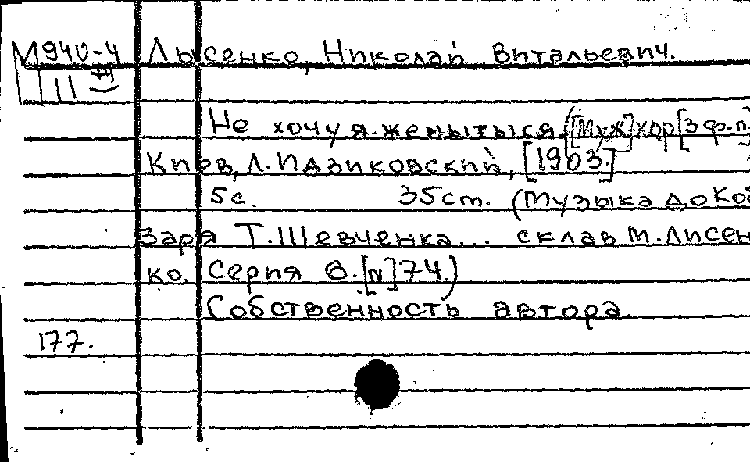 М940-4 Лысенко, Николай Витальевич.
III
Не хочу я женытыся. [Муж] хор [3 ф.п.
Киев, Л. Идзиковский, [1903.]
5с. 35ст. (Музыка до Коб
заря Т. Шевченка... склав М. Лисен
ко. Серия 8. [N] 74.)
Собственность автора
177.